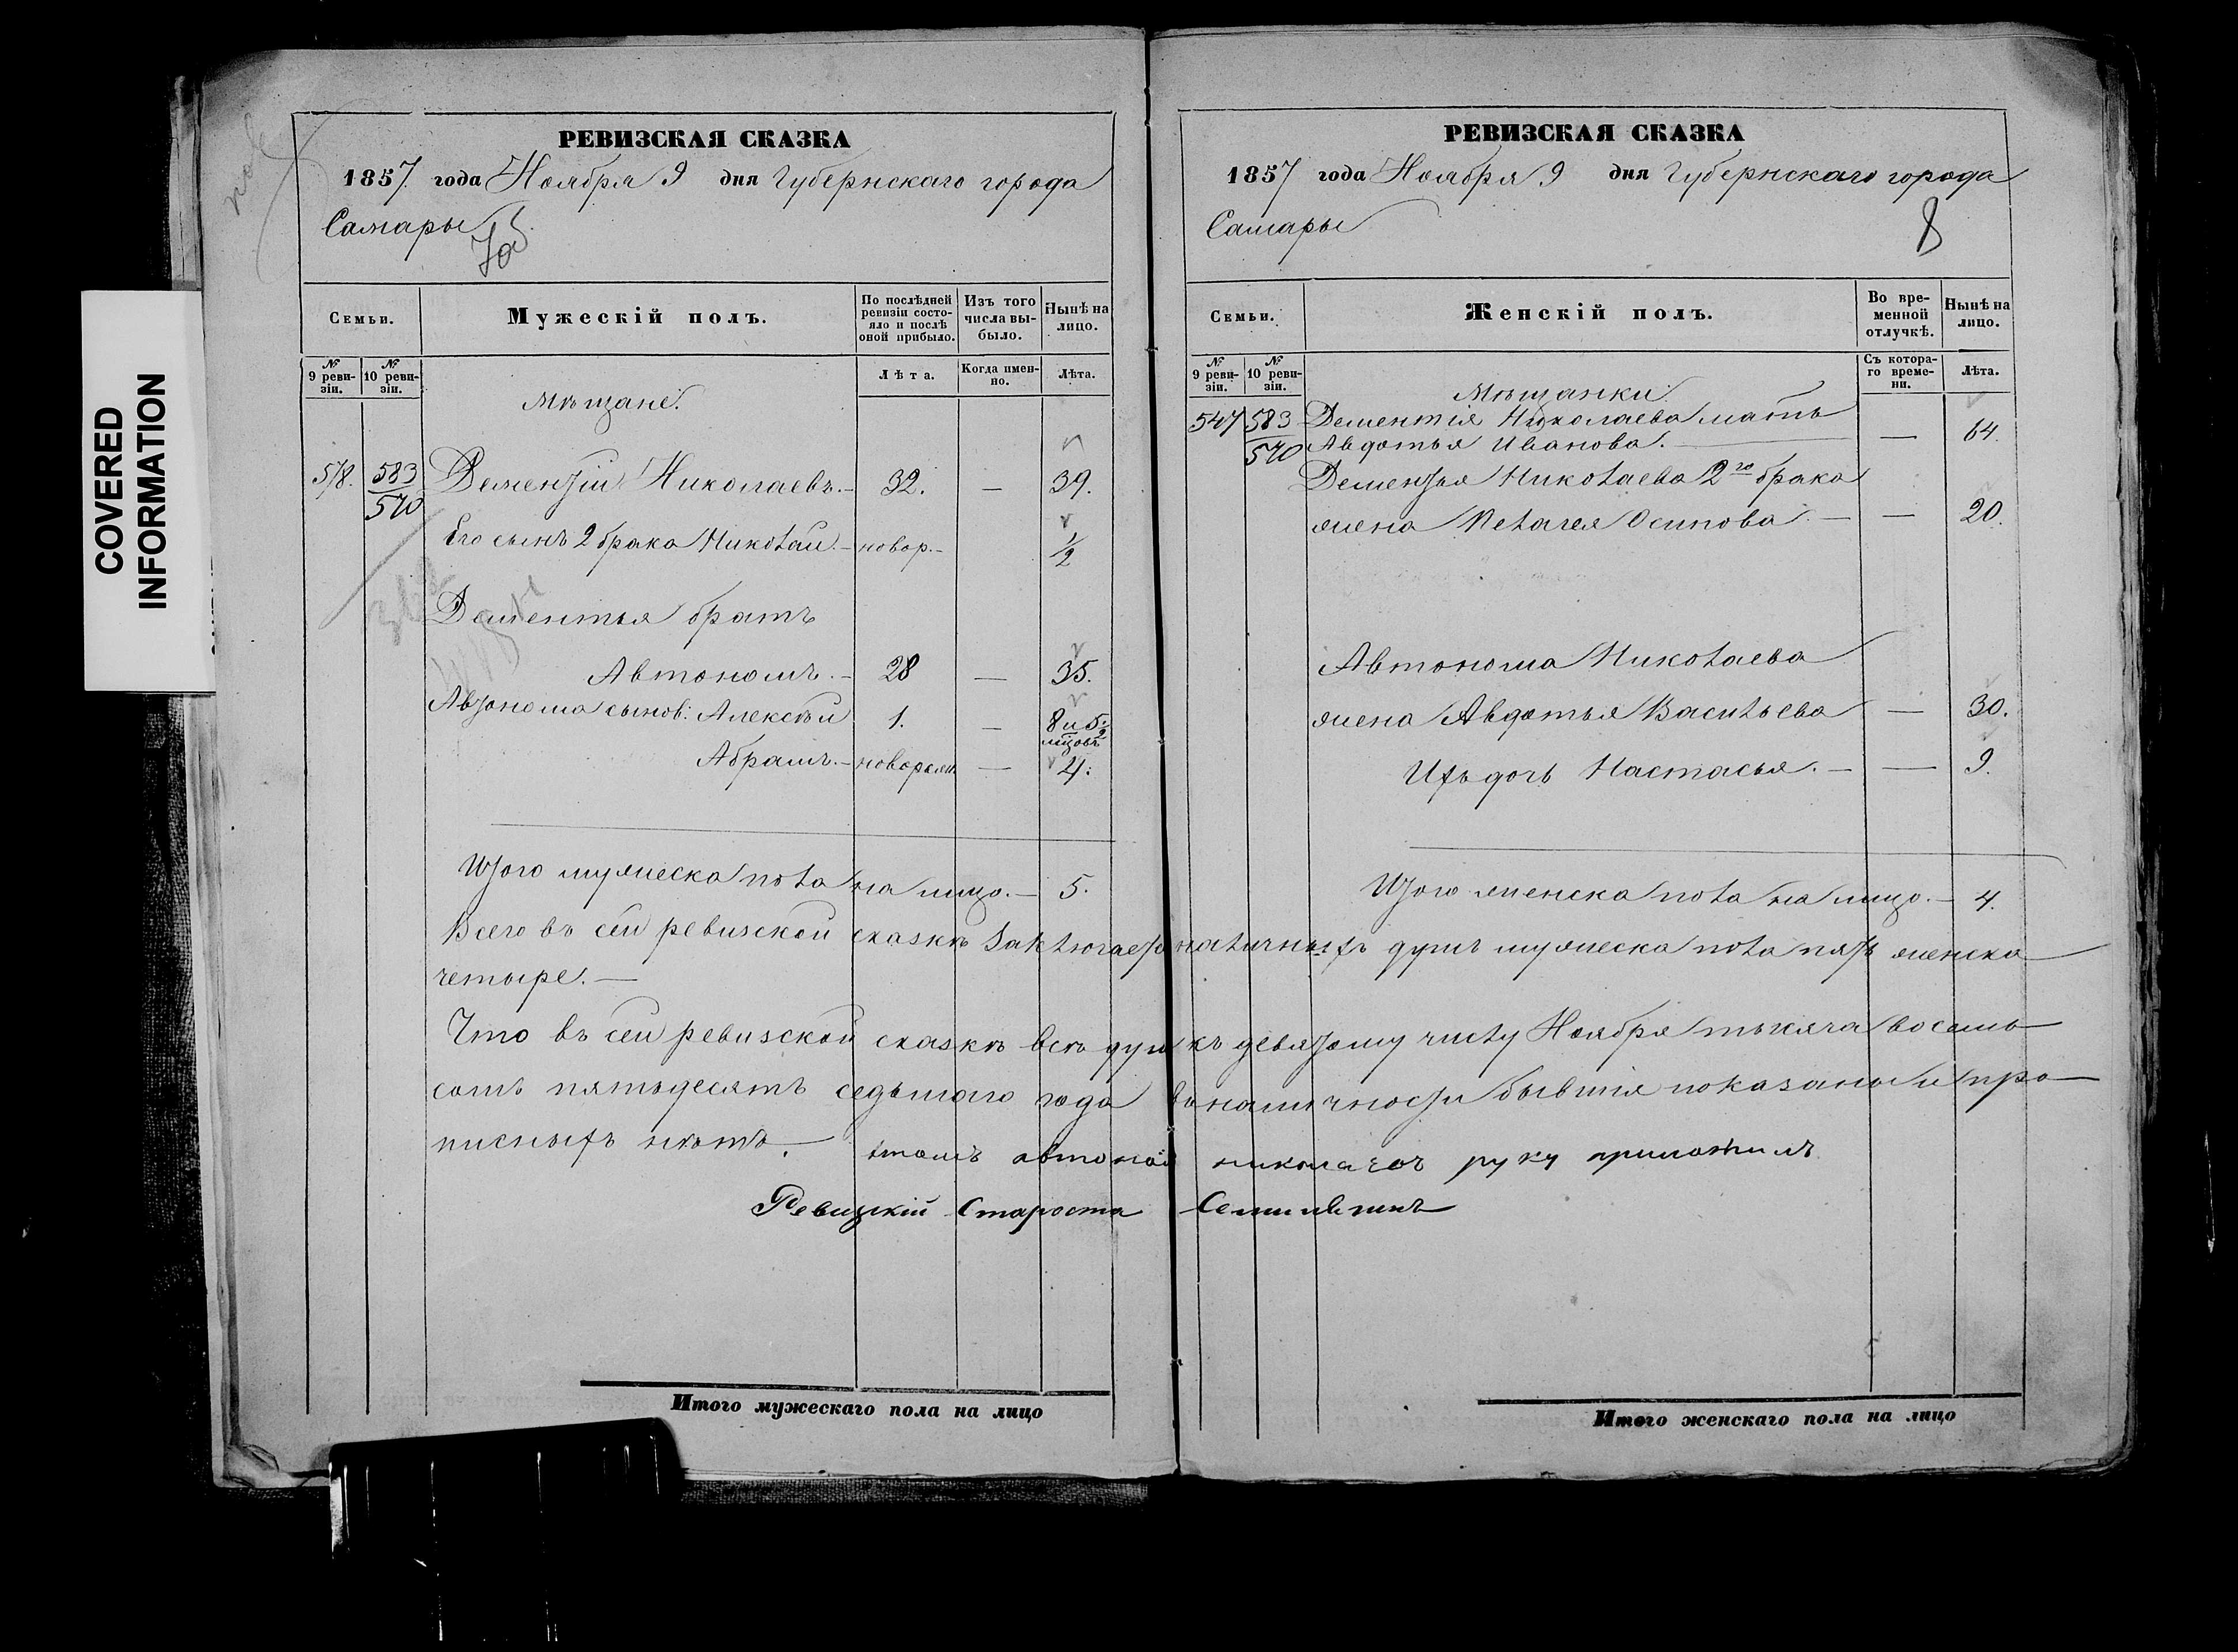 COVERED
INFORMATION
РЕВИЗСКАЯ СКАЗКА
1857 года Ноября 9 дня Губернскаго города
Самары
Семьи.
Мужескій полъ.
По послѣдней ревизіи состояло и послѣ оной прибыло.
Изъ того числа выбыло.
Нынѣ на лицо.
№ 9 ревизіи.
№ 10 ревизіи.
Лѣта.
Когда именно.
Лѣта.
Мѣщане.
578. 583 Дементій Николаевъ. 32. — 39.
570
Его сынъ 2 брака Николай. новор. 1/2
Дементья братъ
Автономъ. 28 — 35.
Автонома сынов: Алексѣй 1. — 8 и 5 1/2
мѣцовъ
Абрамъ. новорожд. — 4.
Итого мужеска пола на лицо. 5.
РЕВИЗСКАЯ СКАЗКА
1857 года Ноября 9 дня Губернскаго города
Самары
8
Семьи.
Женскій полъ.
Во временной отлучкѣ.
Нынѣ на лицо.
№ 9 ревизіи.
№ 10 ревизіи.
Съ котораго времени.
Лѣта.
Мѣщанки.
547 583 Дементія Николаева мать
570 Авдотья Иванова. — 64.
Дементья Николаева 2го брака
жена Пелагея Осипова. — 20.
Автонома Николаева
жена Авдотья Васильева — 30.
Ихъ дочь Настасья. — 9.
Итого женска пола на лицо. 4.
Всего въ сей ревизской сказкѣ заключается наличныхъ душъ мужеска пола пять женска
четыре.—
Что въ сей ревизской сказкѣ всѣ душ къ девятому числу Ноября тысяча восемь
сотъ пятьдесятъ седьмаго года въ наличности бывшія показаны и про-
писныхъ нѣтъ. втомъ автоном николаевъ руку приложилъ
Ревизскій Староста
Итого мужескаго пола на лицо
Итого женскаго пола на лицо